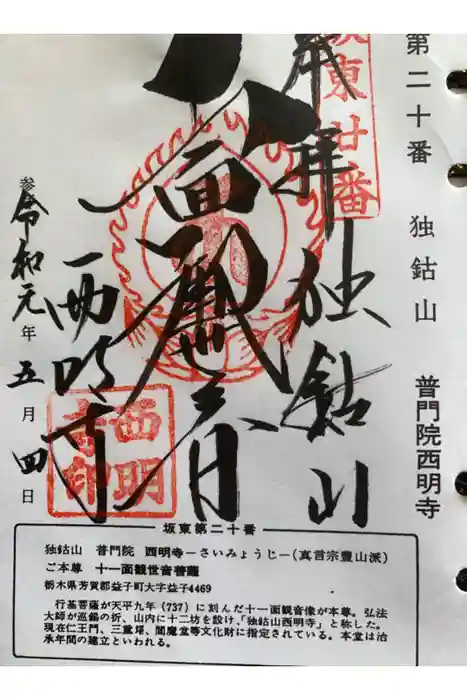 第二十番 独鈷山 普門院西明寺
坂東廿番
奉拝
独鈷山
十一面観世音
西明寺
西明
寺印
参
令和元年五月四日
坂東第二十番
独鈷山 普門院 西明寺ーさいみょうじー(真言宗豊山派)
ご本尊 十一面観世音菩薩
栃木県芳賀郡益子町大字益子4469
行基菩薩が天平九年(737)に刻んだ十一面観音像が本尊。弘法
大師が巡錫の折、山内に十二坊を設け、「独鈷山西明寺」と称した。
現在仁王門、三重塔、閻魔堂等文化財に指定されている。本堂は治
承年間の建立といわれる。